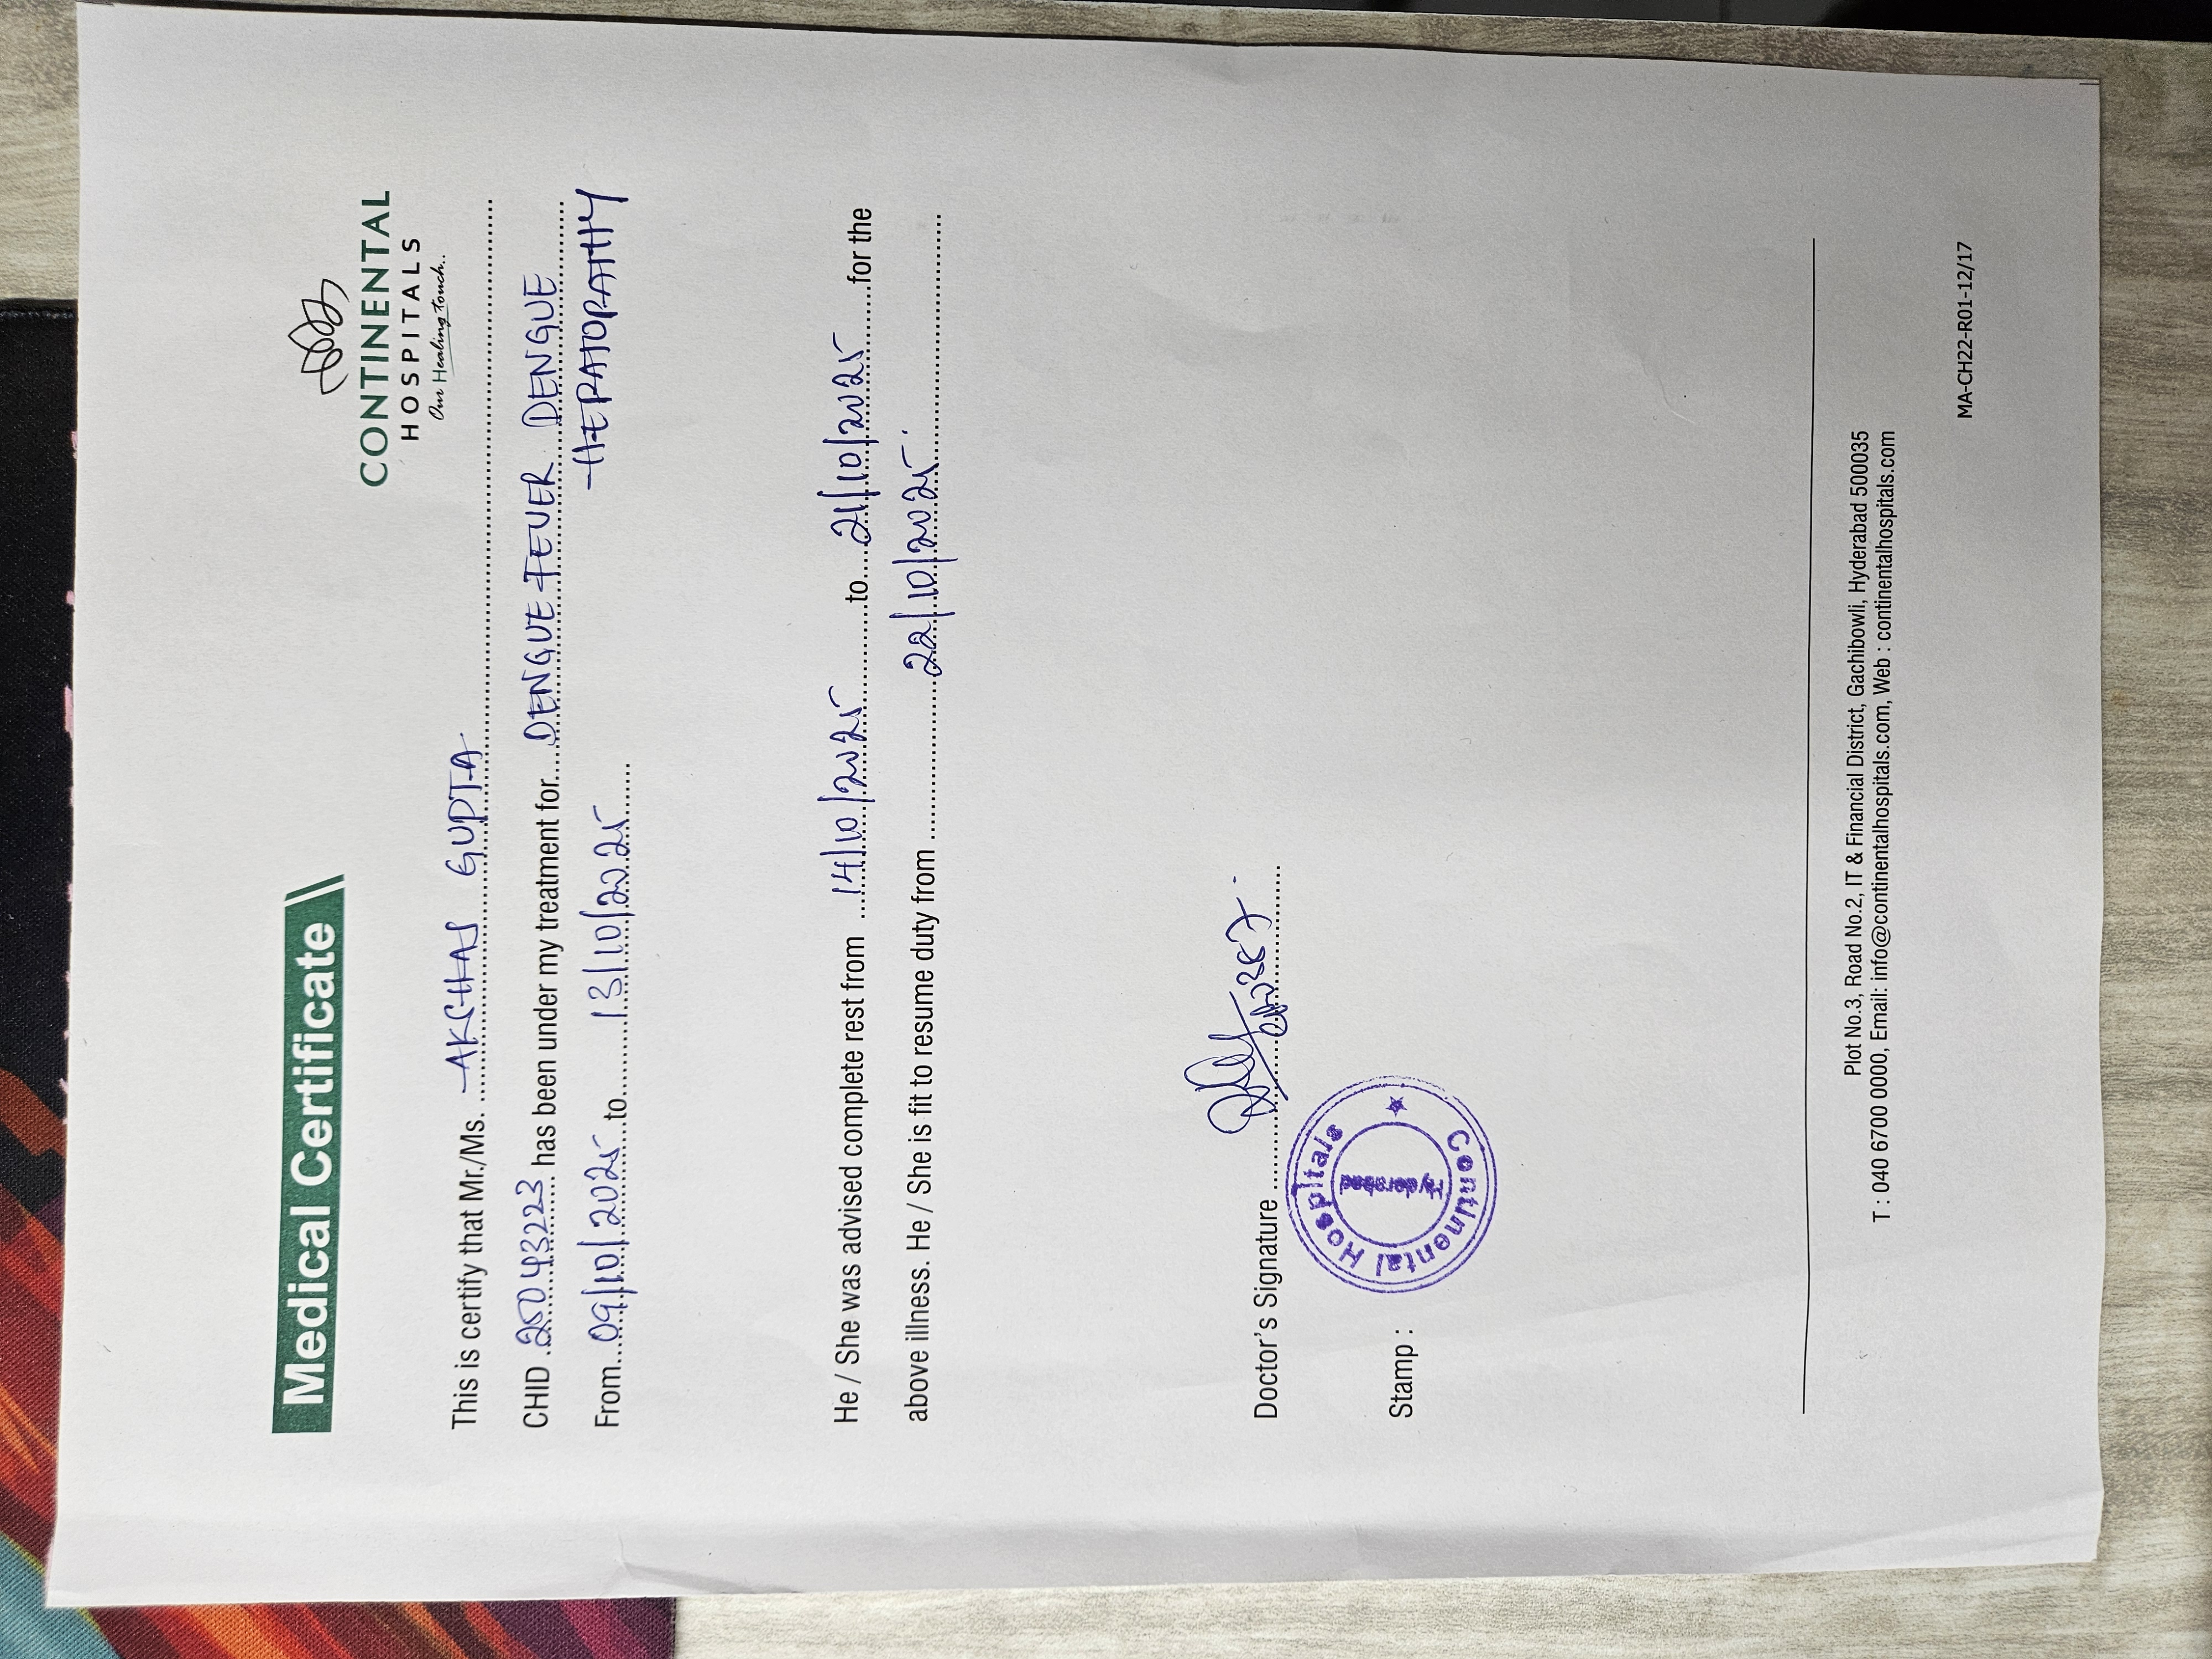 Medical Certificate
CONTINENTAL
HOSPITALS
Our Healing touch..
This is certify that Mr./Ms. AKSHAJ GUPTA
CHID 25043223 has been under my treatment for DENGUE FEVER DENGUE
HEPATOPATHY
From 09/10/2025 to 13/10/2025
He / She was advised complete rest from 14/10/2025 to 21/10/2025 for the
above illness. He / She is fit to resume duty from 22/10/2025
Doctor's Signature
Stamp :
Continental Hospitals
Hyderabad
Plot No.3, Road No.2, IT & Financial District, Gachibowli, Hyderabad 500035
T : 040 6700 0000, Email: info@continentalhospitals.com, Web : continentalhospitals.com
MA-CH22-R01-12/17